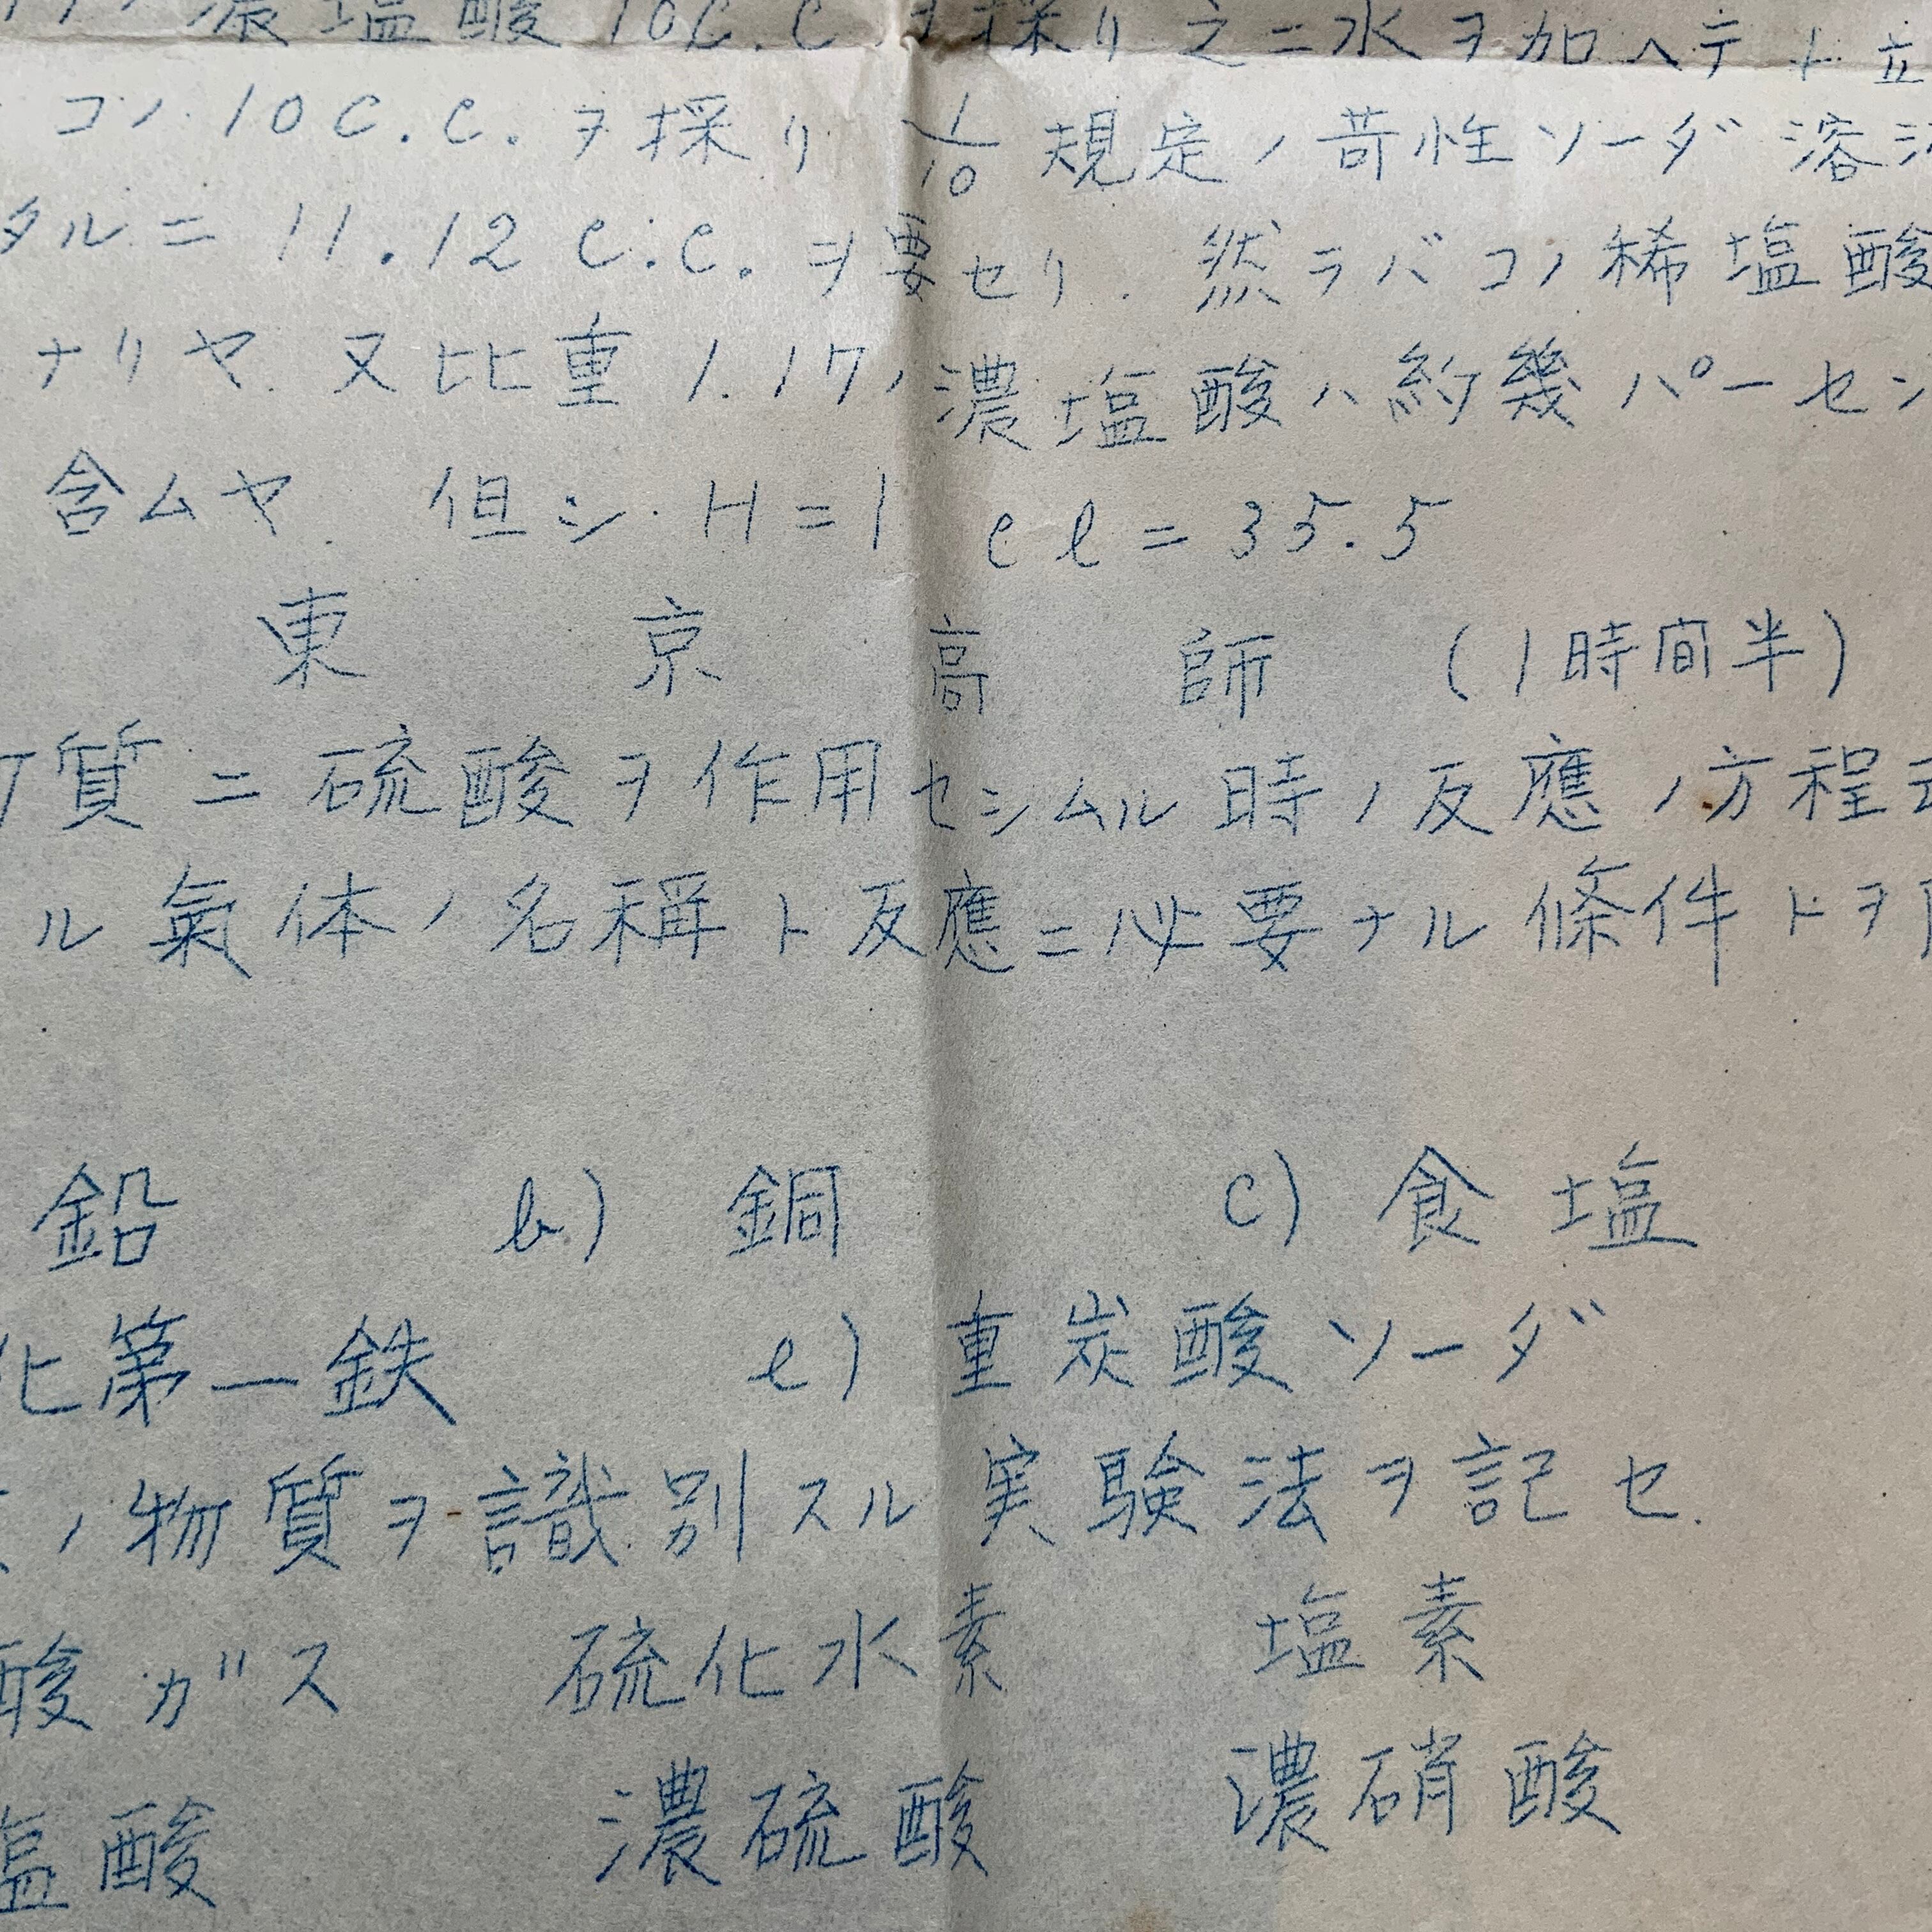 濃塩酸10C.C.ヲ採リ之ニ水ヲ加ヘテ一立
コノ10C.C.ヲ採リ 1/10 規定ノ苛性ソーダ溶
タルニ 11.12 C.C.ヲ要セリ. 然ラバコノ稀塩酸
ナリヤ. 又比重1.17ノ濃塩酸ハ約幾パーセン
含ムヤ. 但シ. H=1 Cl=35.5
東京高師 (1時間半)
質ニ硫酸ヲ作用セシムル時ノ反應ノ方程
ル氣体ノ名稱ト反應ニ必要ナル條件トヲ
鉛 b) 銅 C) 食塩
化第一鉄 e) 重炭酸ソーダ
ノ物質ヲ識別スル実験法ヲ記セ.
酸ガス 硫化水素 塩素
塩酸 濃硫酸 濃硝酸